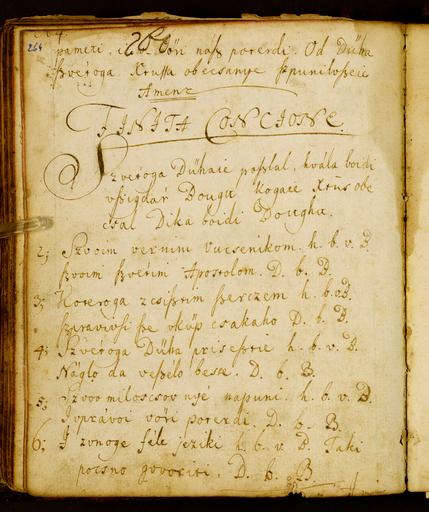 264
266
pameti, i u vöri nasz poterdi. Od Düha
szvetoga. Xtussa obecsanye szpunilvsseie
Amenz
FINITA CONCIONE.
Szvetoga Dühaie paszlal, hvála boidi
vszigdár Dougu. Kogaie Xtus obe
csal Dika boidi Doughu.
2; Szvoim vernim vucsenikom. h. b. v. D.
szvoim szvetim Apostolom. D. b. D.
3; Koteroga zcsisztim szerczem h. b. v D.
szpravivsi sze vküp csakaho D. b. D.
4; Szvetoga Düha prisesztie h. b. v. D.
Náglo da veszelo besse. D. b. B.
5; Szvoo miloscsov nyé napuni. h. b. v. D.
I vprávoi vöri poterdi. D. b. B.
6; I zvnoge féle jeziki h. b. v D. Taki
pocsno govoriti. D. b. B.